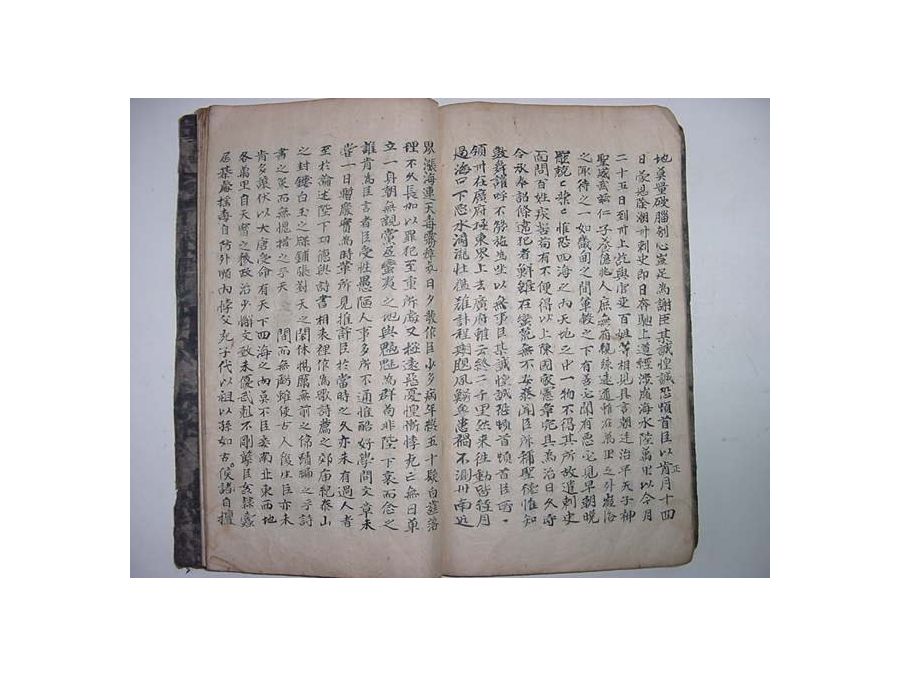 地莫量破腦刳心豈足為謝臣某誠惶誠恐頓首臣以正月十四
日蒙恩除潮州刺史即日奔馳上道經涉嶺海水陸萬里以今月
二十五日到州上訖與官吏百姓等相見具言朝廷治平天子神
聖威武慈仁子養億兆人庶無有親疎遠邇雖在萬里之外嶺海
之陬待之一如畿甸之間輦轂之下有善必聞有惡必見早朝晚
罷兢〻業〻惟恐四海之內天地之中一物不得其所故遣刺史
面問百姓疾苦苟有不便得以上陳國家憲章完具為治日久守
令承奉詔條違犯者鮮雖在蠻荒無不安泰聞臣所稱聖德惟知
鼓舞讙呼不勞施為坐以無事臣某誠惶誠恐頓首頓首臣所
領州在廣府極東界上去廣府雖云終二千里然來往動皆經月
過海口下惡水濤瀧壯猛難計程期颶風鰐魚患禍不測州南近
界漲海連天毒霧瘴氛日夕發作臣少多病年終五十髮白齒落
理不久長加以罪犯至重所處又極遠惡憂惶慚悸死亡無日單
立一身朝無親黨居蠻夷之地與魑魅為群苟非陛下哀而念之
誰肯為臣言者臣受性愚陋人事多所不通惟酷好學問文章未
嘗一日暫廢實為時輩所見推許臣於當時之文亦未有過人者
至於論述陛下功德與詩書相表裡作為歌詩薦之郊廟紀泰山
之封鏤白玉之牒鋪張對天之閎休揚厲無前之偉績編之乎詩
書之策而無愧措之乎天 間而無虧雖使古人復生臣亦未
肯多讓伏以大唐受命有天下四海之內莫不臣妾南北東西地
各萬里自天寶之後政治少懈文致未優武剋不剛孽臣奸隸蠹
居棊處搖毒自防外順內悖父死子代以祖以孫如古侯諸自擅